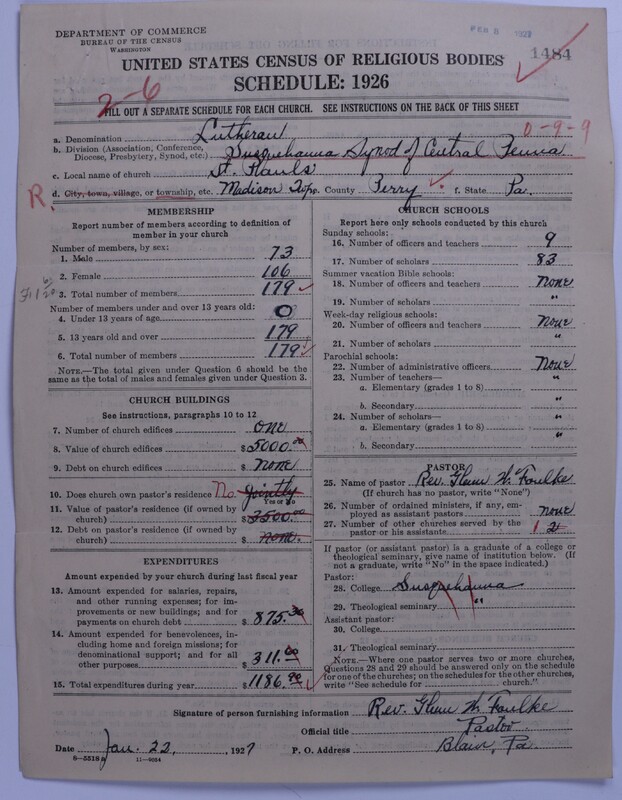 DEPARTMENT OF COMMERCE
BUREAU OF THE CENSUS
WASHINGTON
FEB 8 1927
1484
UNITED STATES CENSUS OF RELIGIOUS BODIES
SCHEDULE: 1926
2-6
FILL OUT A SEPARATE SCHEDULE FOR EACH CHURCH. SEE INSTRUCTIONS ON THE BACK OF THIS SHEET
0-9-9
a. Denomination Lutheran
b. Division (Association, Conference, Diocese, Presbytery, Synod, etc.) Susquehanna Synod of Central Penna
c. Local name of church St. Pauls
R.
d. City, town, village, or township, etc. Madison Twp. County Perry f. State Pa.
MEMBERSHIP
Report number of members according to definition of
member in your church
Number of members, by sex:
1. Male 73
2. Female 106
3. Total number of members 179
Number of members under and over 13 years old:
4. Under 13 years of age 0
5. 13 years old and over 179
6. Total number of members 179
NOTE.—The total given under Question 6 should be
same as the total of males and females given under Question 3.
CHURCH BUILDINGS
See instructions, paragraphs 10 to 12
7. Number of church edifices One
8. Value of church edifices $5000.00
9. Debt on church edifices $ None
10. Does church own pastor's residence No. Jointly
Yes or No
11. Value of pastor's residence (if owned by
church) $3500.00
12. Debt on pastor's residence (if owned by
church) $ None.
EXPENDITURES
Amount expended by your church during last fiscal year
13. Amount expended for salaries, repairs,
and other running expenses; for im-
provements or new buildings; and for
payments on church debt $ 875.30
14. Amount expended for benevolences, in-
cluding home and foreign missions; for
denominational support; and for all
other purposes $ 311.60
15. Total expenditures during year $1186.90
CHURCH SCHOOLS
Report here only schools conducted by this church
Sunday schools:
16. Number of officers and teachers 9
17. Number of scholars 83
Summer vacation Bible schools:
18. Number of officers and teachers None
19. Number of scholars "
Week-day religious schools:
20. Number of officers and teachers None
21. Number of scholars "
Parochial schools:
22. Number of administrative officers None
23. Number of teachers— "
a. Elementary (grades 1 to 8)
b. Secondary "
24. Number of scholars— "
a. Elementary (grades 1 to 8) "
b. Secondary "
PASTOR
25. Name of pastor Rev. Glenn W. Foulke
(If church has no pastor, write "None")
26. Number of ordained ministers, if any, em-
ployed as assistant pastors None
27. Number of other churches served by the
pastor or his assistants 1 2
If pastor (or assistant pastor) is a graduate of a college or
theological seminary, give name of institution below. (If
not a graduate, write "No" in the space indicated.)
Pastor:
28. College Susquehanna
29. Theological seminary "
Assistant pastor:
30. College
31. Theological seminary
NOTE.—Where one pastor serves two or more churches,
Questions 28 and 29 should be answered only on the schedule
for one of the churches; on the schedules for the other churches,
write "See schedule for church."
Signature of person furnishing information Rev. Glenn W. Foulke
Official title Pastor
Date Jan. 22, 1927 P. O. Address Blain, Pa.
8-5518a 11-9084